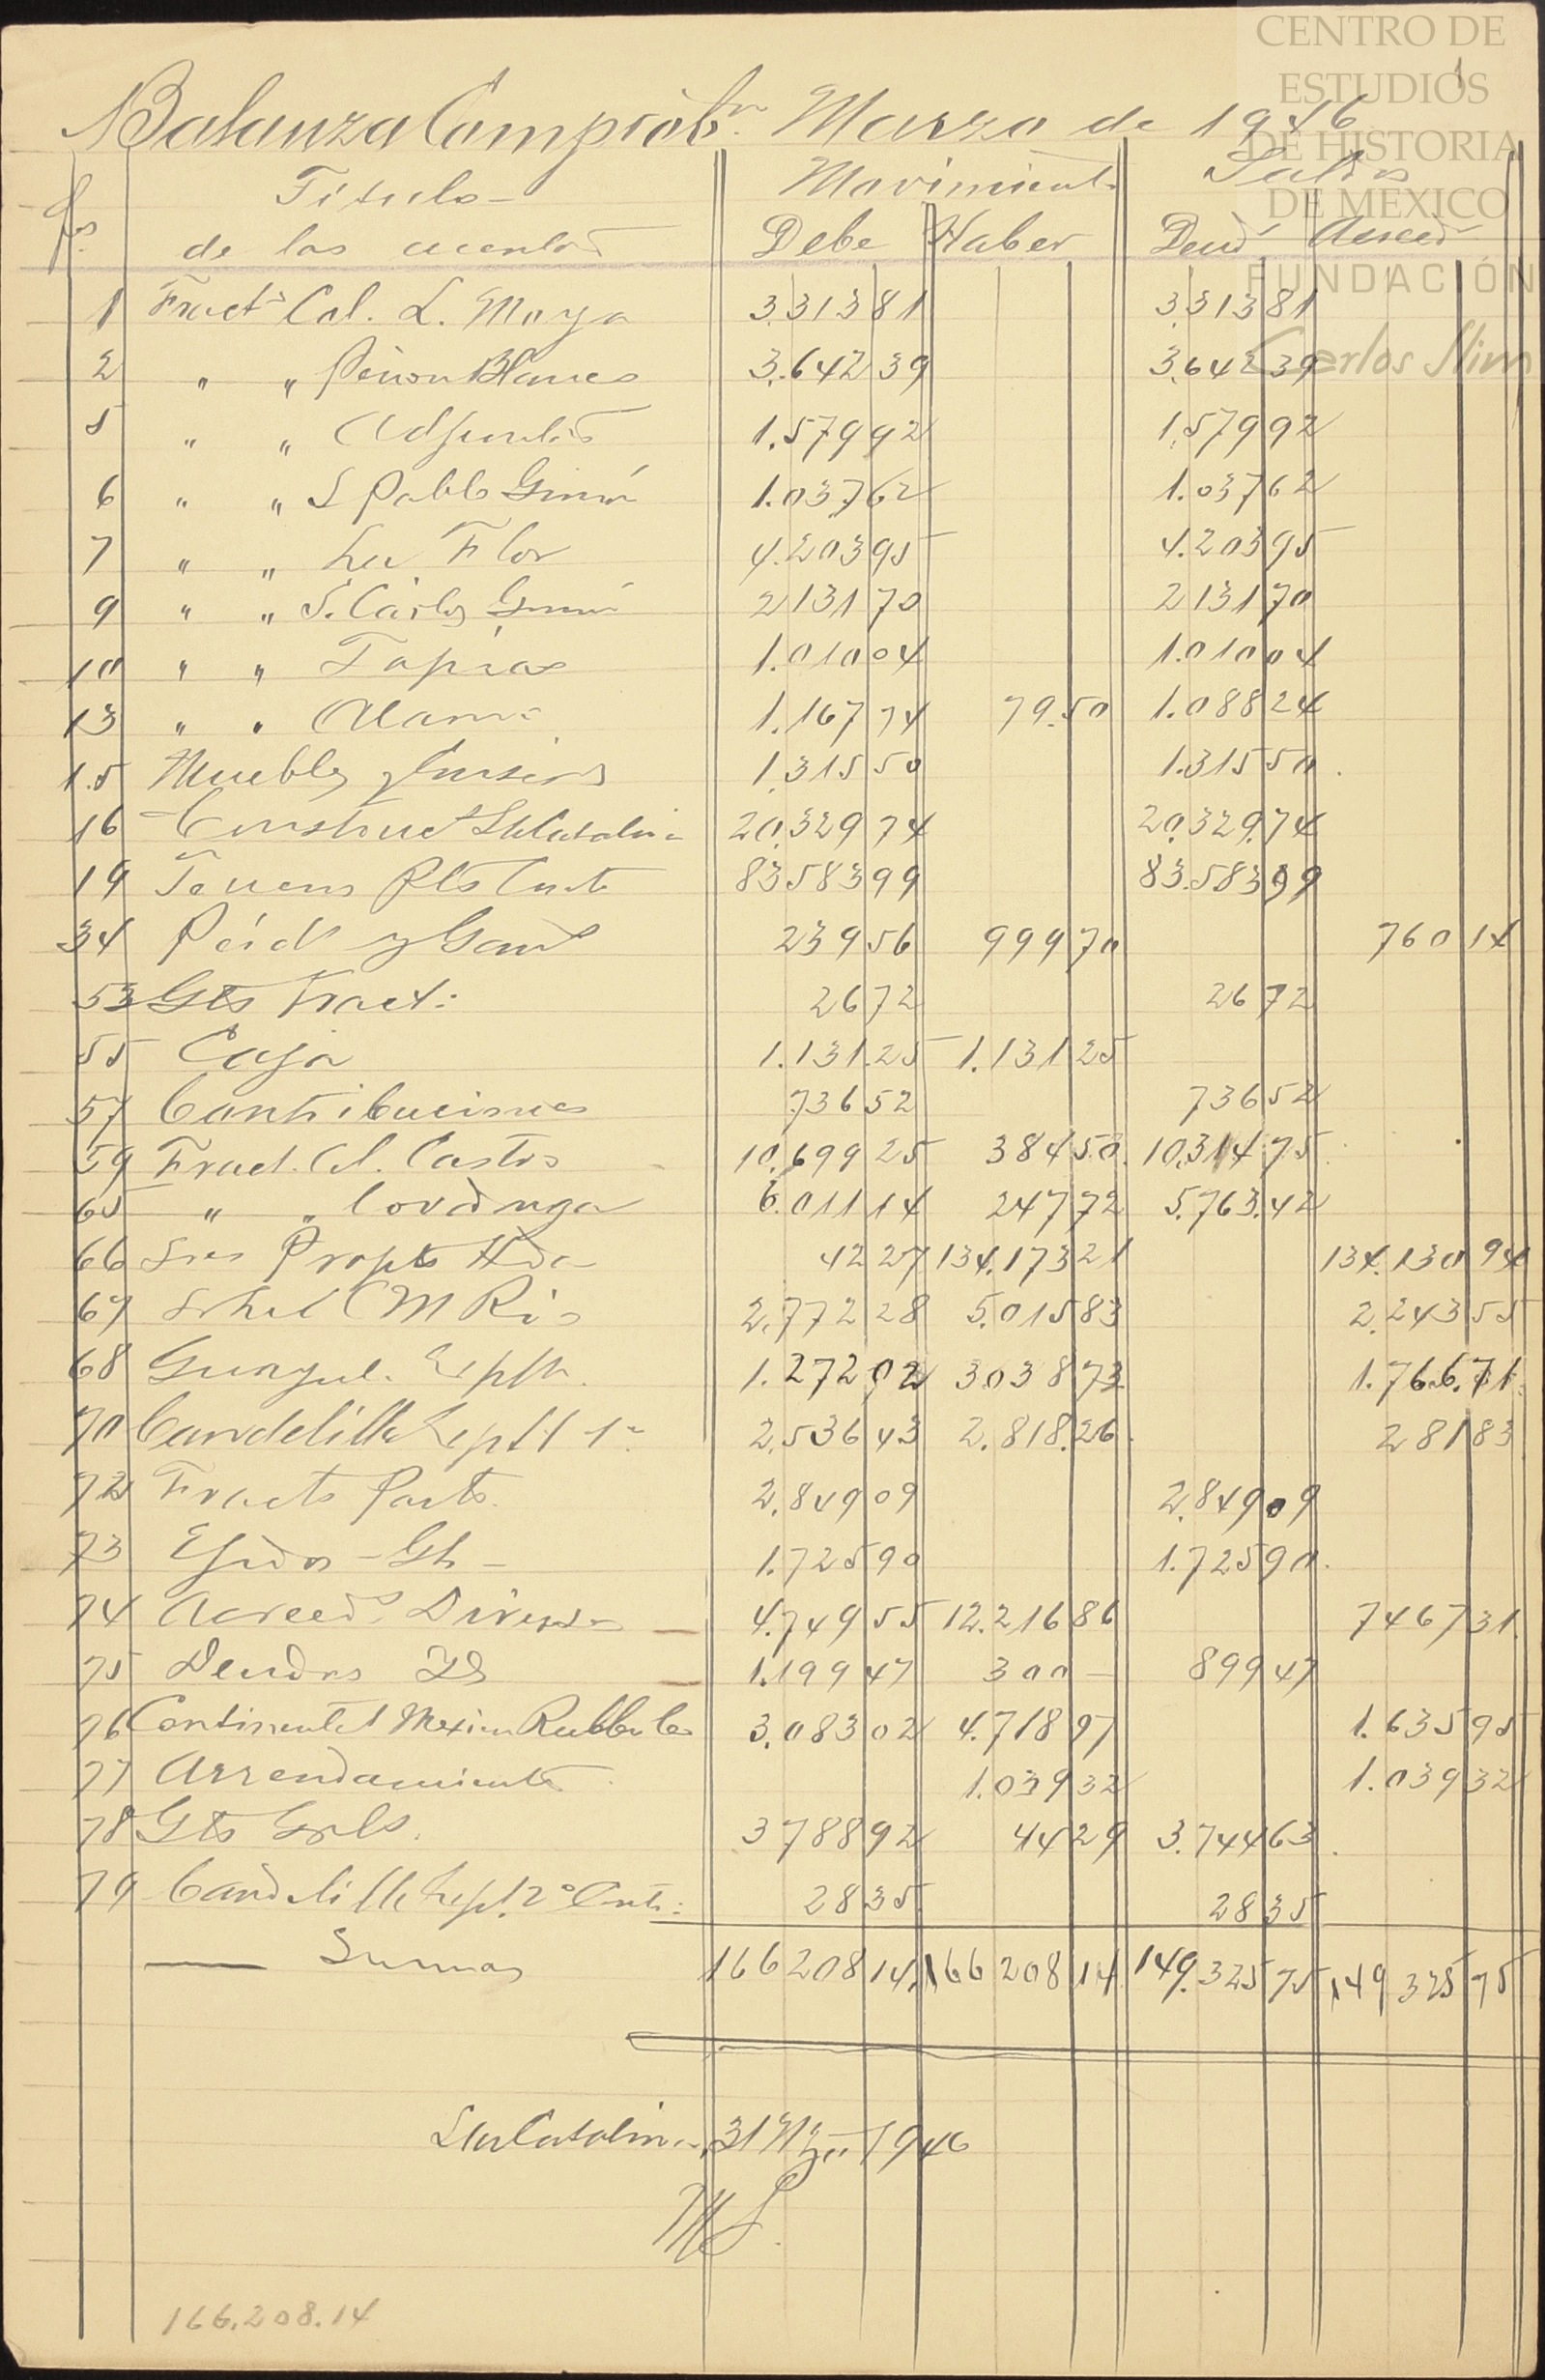 CENTRO DE
ESTUDIOS
DE HISTORIA
DE MÉXICO
FUNDACIÓN
Carlos Slim
1
Balanza Comprobn. Marzo de 1946
fos. Titulo Movimient. Saldos
de las cuentas Debe Haber Deud Acreed
1 Fract. Col. L. Moya 3.313 81 3.313 81
2 " " Peñon Blanco 3.642 39 3.642 39
5 " " Adjuntas 1.579 92 1.579 92
6 " " S Pablo 1.037 62 1.037 62
7 " " La Flor 4.203 95 4.203 95
9 " " S. Carlos 2131 70 2131 70
10 " " Tapias 1.010 04 1.010 04
13 " " 1.167 74 79.50 1.088 24
15 Muebles y 1.315 50 1.315 50
16 Construc StaCatalina 20.329 74 20.329.74
19 83583 99 83.583 99
34 Pérd y Gan 239 56 999 70 760 14
53 Gts Fract: 26 72 26 72
55 Caja 1.131.25 1.131 25
57 Contribuciones 736 52 736 52
59 Fract. Cl. Castro 10.699 25 384 50 10.314 75
65 " " Covadonga 6.011 14 247 72 5.763.42
66 Sres Propts Hda 42 27 134.173 21 134.130 94
67 M Rio 2.772 28 5.015 83 2.243 55
68 1.272 02 3038 73 1.766.71
70 Candelilla Septt 1a 2.536 43 2.818.26 281 83
72 Fracts Parts. 2.849 09 2.849 09
73 Ejidos - Gts - 1.725 90 1.725 90
74 Acreed. Diversos 4.749 55 12.216 86 7467 31
75 Deudrs 1.199 47 300 — 899 47
76 Continental Mexican Rubber Co 3.083 02 4.718 97 1.635 95
77 Arrendamients 1.039 32 1.039 32
78 Gts Grls. 3788 92 44 29 3.744 63
79 Candelilla Sept. 2° 28 35 28 35
Sumas 166 208 14 166 208 14 149.325 75 149 325 75
StaCatalina, 31 Mzo 1946
166.208.14